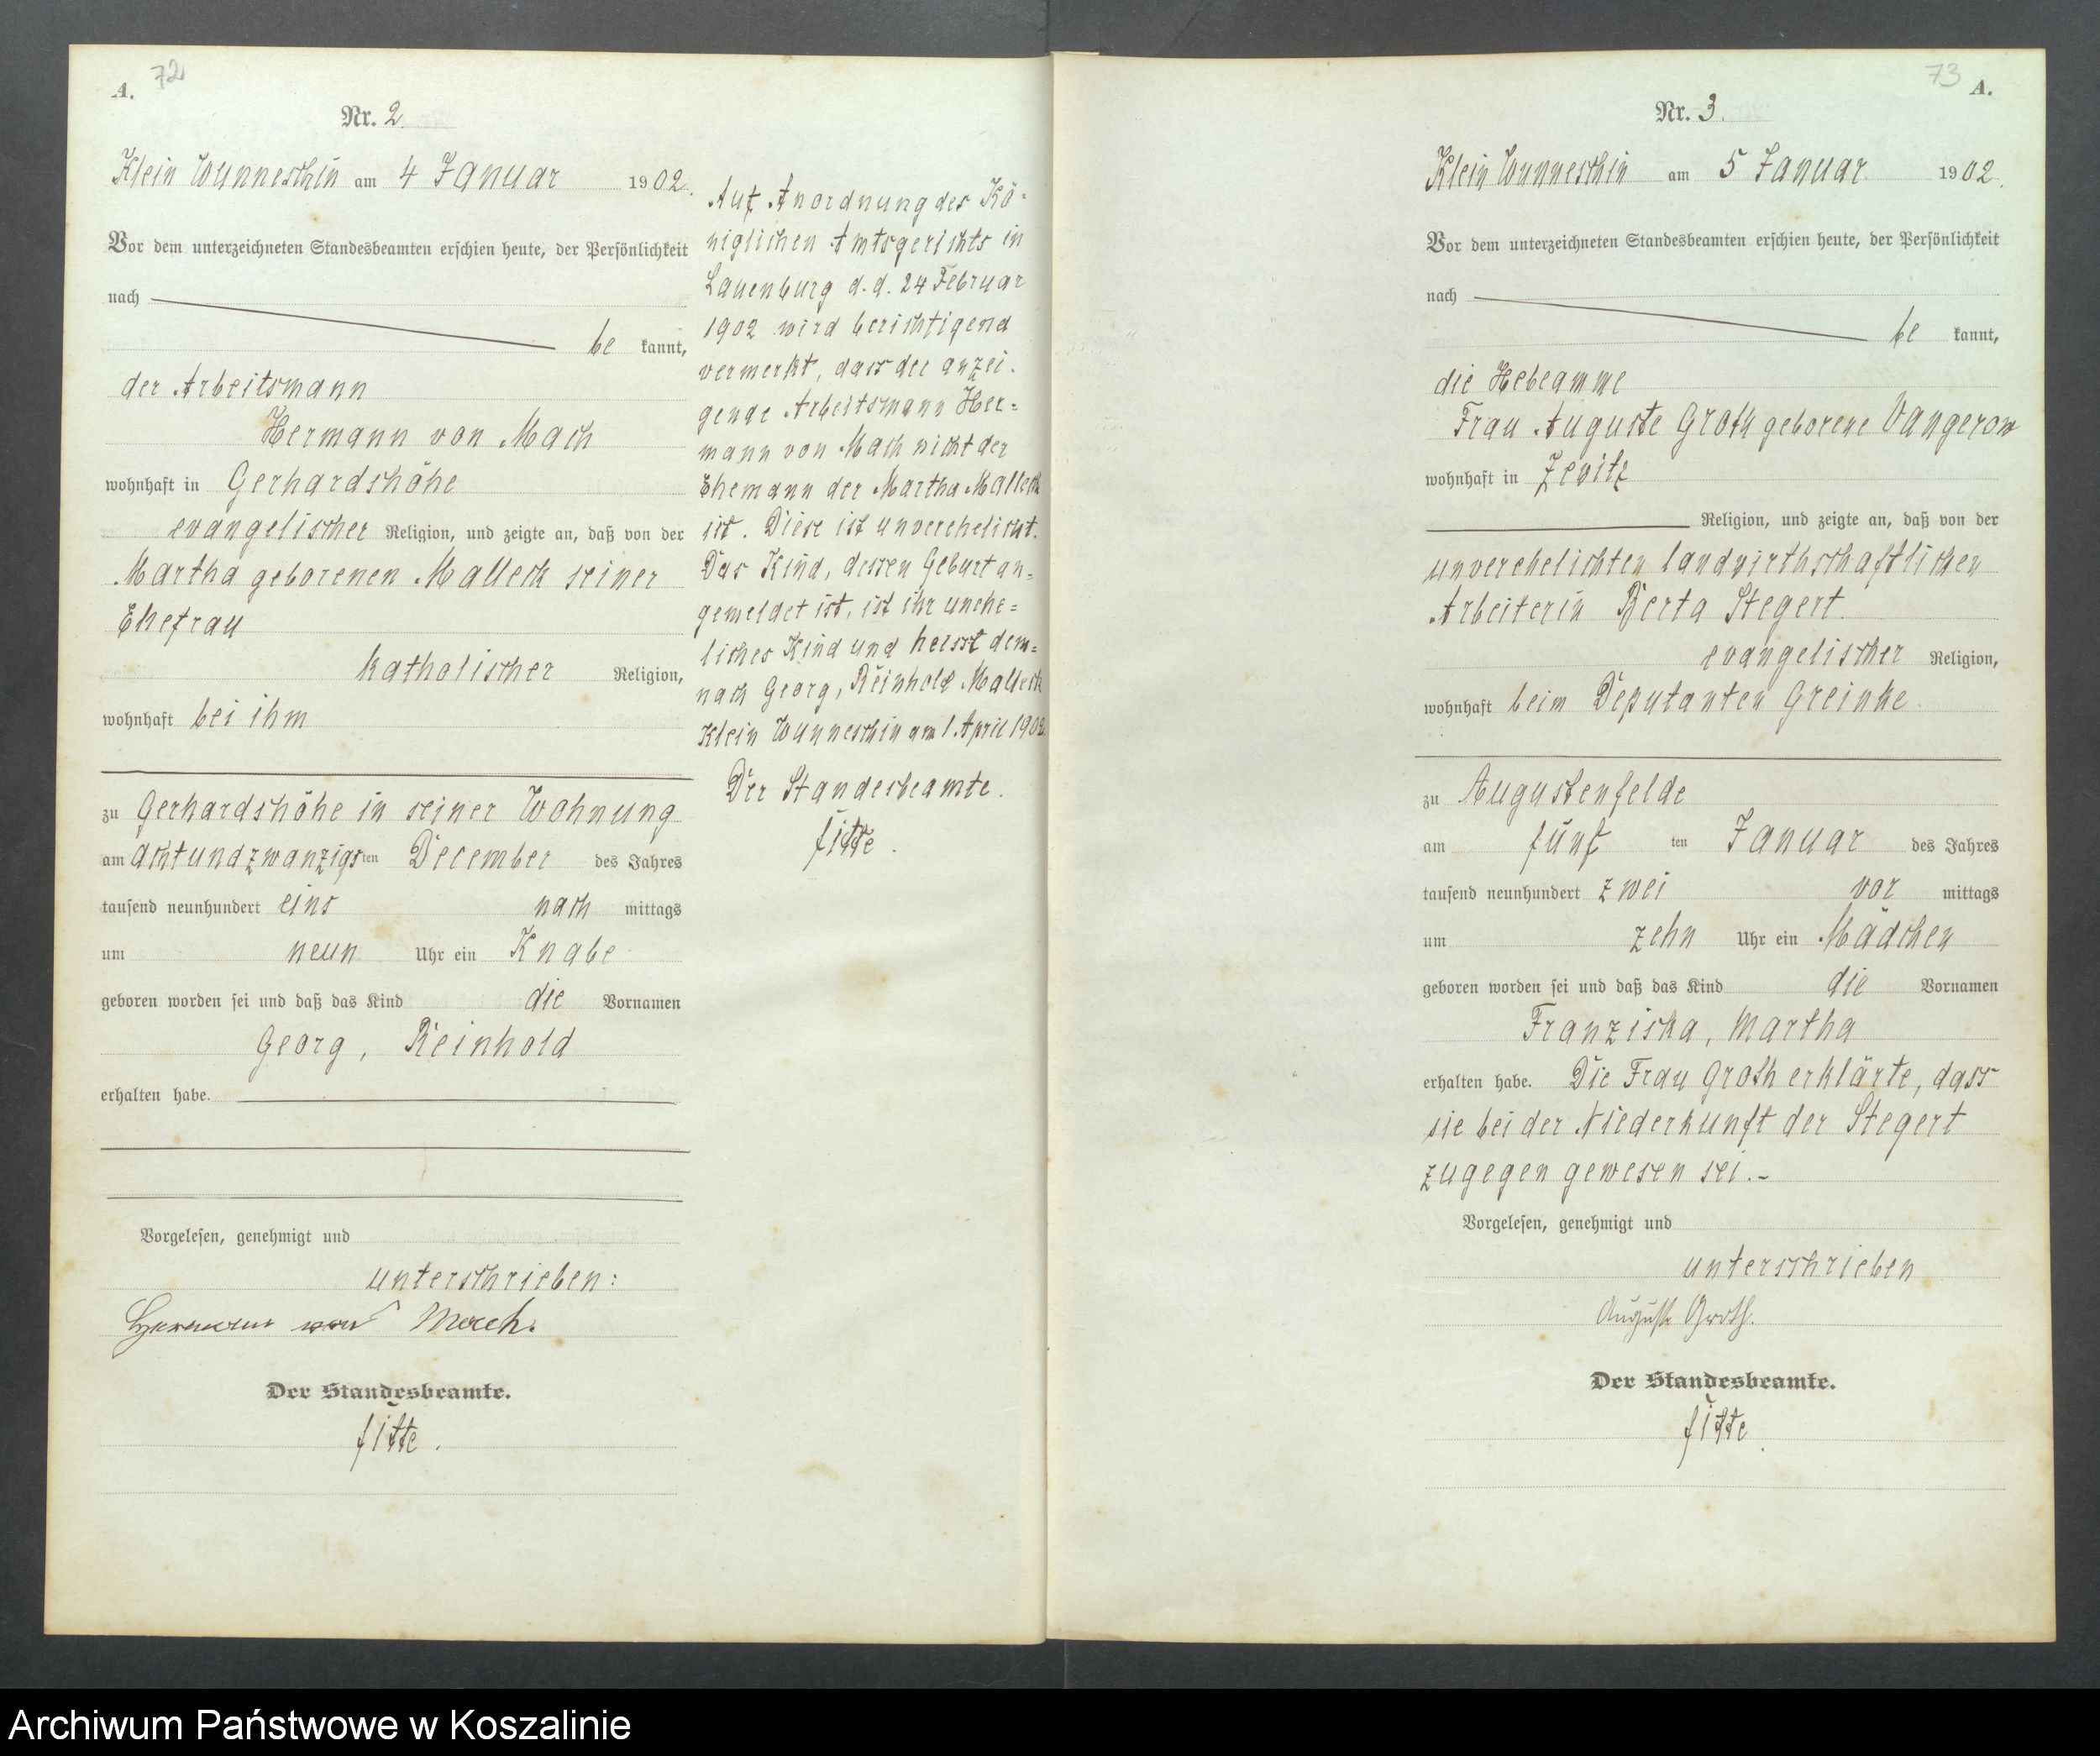 72
A.
Nr. 2.
Klein Wunneschin am 4 Januar 1902.
Vor dem unterzeichneten Standesbeamten erschien heute, der Persönlichkeit
nach
be kannt,
der Arbeitsmann
Hermann von Mach
wohnhaft in Gerhardshöhe
evangelischer Religion, und zeigte an, daß von der
Martha geborenen Malleck seiner
Ehefrau
katholischer Religion,
wohnhaft bei ihm
zu Gerhardshöhe in seiner Wohnung
am achtundzwanzigsten December des Jahres
tausend neunhundert eins nach mittags
um neun Uhr ein Knabe
geboren worden sei und daß das Kind die Vornamen
Georg, Reinhold
erhalten habe.
Vorgelesen, genehmigt und
unterschrieben:
Hermann von Mach.
Der Standesbeamte.
fitte.
Auf Anordnung des Kö-
niglichen Amtsgerichts in
Lauenburg d. d. 24 Februar
1902 wird berichtigend
vermerkt, dass der anzei-
gende Arbeitsmann Her=
mann von Mach nicht der
Ehemann der Martha Malleck
ist. Diese ist unverehelicht.
Das Kind, dessen Geburt an=
gemeldet ist, ist ihr unehe=
liches Kind und heisst dem=
nach Georg, Reinhold Malleck
Klein Wunneschin am 1. April 1902.
Der Standesbeamte.
fitte.
73
A.
Nr. 3.
Klein Wunneschin am 5 Januar. 1902.
Vor dem unterzeichneten Standesbeamten erschien heute, der Persönlichkeit
nach
be kannt,
die Hebeamme
Frau Auguste Groth geborene Vangerow
wohnhaft in Zewitz
Religion, und zeigte an, daß von der
unverehelichten landwirthschaftlichen
Arbeiterin Berta Stegert.
evangelischer Religion,
wohnhaft beim Deputanten Greinke.
zu Augustenfelde
am fünf ten Januar des Jahres
tausend neunhundert zwei vor mittags
um zehn Uhr ein Mädchen
geboren worden sei und daß das Kind die Vornamen
Franziska, Martha
erhalten habe. Die Frau Groth erklärte, dass
sie bei der Niederkunft der Stegert
zugegen gewesen sei.-
Vorgelesen, genehmigt und
unterschrieben
Auguste Groth.
Der Standesbeamte.
fitte.
Archiwum Państwowe w Koszalinie